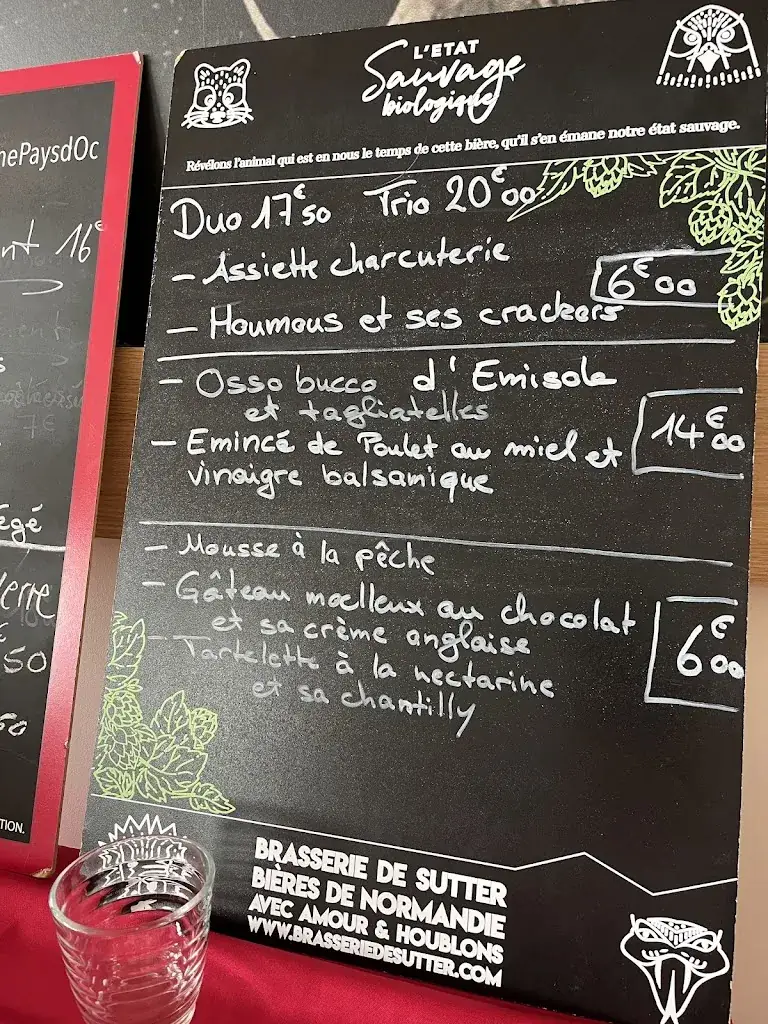 L'ETAT
Sauvage
biologique
Révélons l'animal qui est en nous le temps de cette bière, qu'il s'en émane notre état sauvage.
Duo 17€50 Trio 20€00
- Assiette charcuterie
6€00
- Houmous et ses crackers
- Osso bucco d'Emisole
et tagliatelles
14€00
- Emincé de Poulet au miel et
vinaigre balsamique
- Mousse à la pêche
- Gâteau moelleux au chocolat
et sa crème anglaise
6€00
- Tartelette à la nectarine
et sa chantilly
BRASSERIE DE SUTTER
BIÈRES DE NORMANDIE
AVEC AMOUR & HOUBLONS
WWW.BRASSERIEDESUTTER.COM
nePaysdOc
nt 16€
7€
égé
erre
50
50
TION.